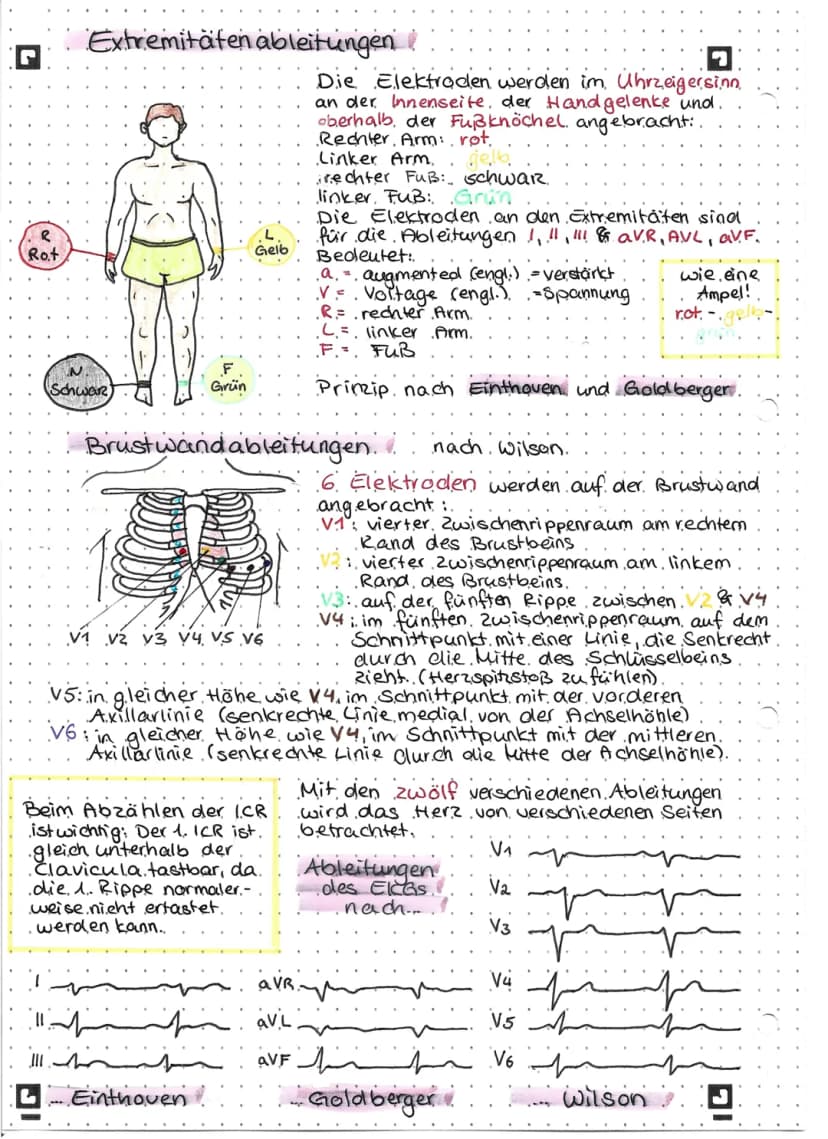 Extremitätenableitungen
Die Elektroden werden im Uhrzeigersinn
an der Innenseite der Handgelenke und
oberhalb der Fußknöchel angebracht:
Rechter Arm: rot
Linker Arm: gelb
rechter Fuß: schwarz
linker Fuß: Grün
Die Elektroden an den Extremitäten sind
für die Ableitungen I, II, III & aVR, AVL, aVF.
Bedeutet:
a = augmented (engl.) = verstärkt
V = Voltage (engl.) = Spannung
R = rechter Arm
L = linker Arm
F = Fuß
wie eine
Ampel!
rot - gelb -
grün
R
Rot
L
Gelb
N
Schwarz
F
Grün
Prinzip nach Einthoven und Goldberger
Brustwandableitungen nach Wilson
6 Elektroden werden auf der Brustwand
angebracht:
V1: vierter Zwischenrippenraum am rechtem
Rand des Brustbeins
V2: vierter Zwischenrippenraum am linkem
Rand des Brustbeins
V3: auf der fünften Rippe zwischen V2 & V4
V4: im fünften Zwischenrippenraum auf dem
Schnittpunkt mit einer Linie, die Senkrecht
durch die Mitte des Schlüsselbeins
zieht. (Herzspitzstoß zu fühlen)
V1 V2 V3 V4 V5 V6
V5: in gleicher Höhe wie V4, im Schnittpunkt mit der vorderen
Axillarlinie (senkrechte Linie medial von der Achselhöhle)
V6: in gleicher Höhe wie V4, im Schnittpunkt mit der mittleren
Axillarlinie (senkrechte Linie durch die Mitte der Achselhöhle).
Beim Abzählen der ICR
ist wichtig: Der 1. ICR ist
gleich unterhalb der
Clavicula tastbar, da
die 1. Rippe normaler-
weise nicht ertastet
werden kann.
Mit den zwölf verschiedenen Ableitungen
wird das Herz von verschiedenen Seiten
betrachtet.
Ableitungen
des EKGs
nach...
V1
V2
V3
I aVR V4
II aVL V5
III aVF V6
... Einthoven ... Goldberger ... Wilson